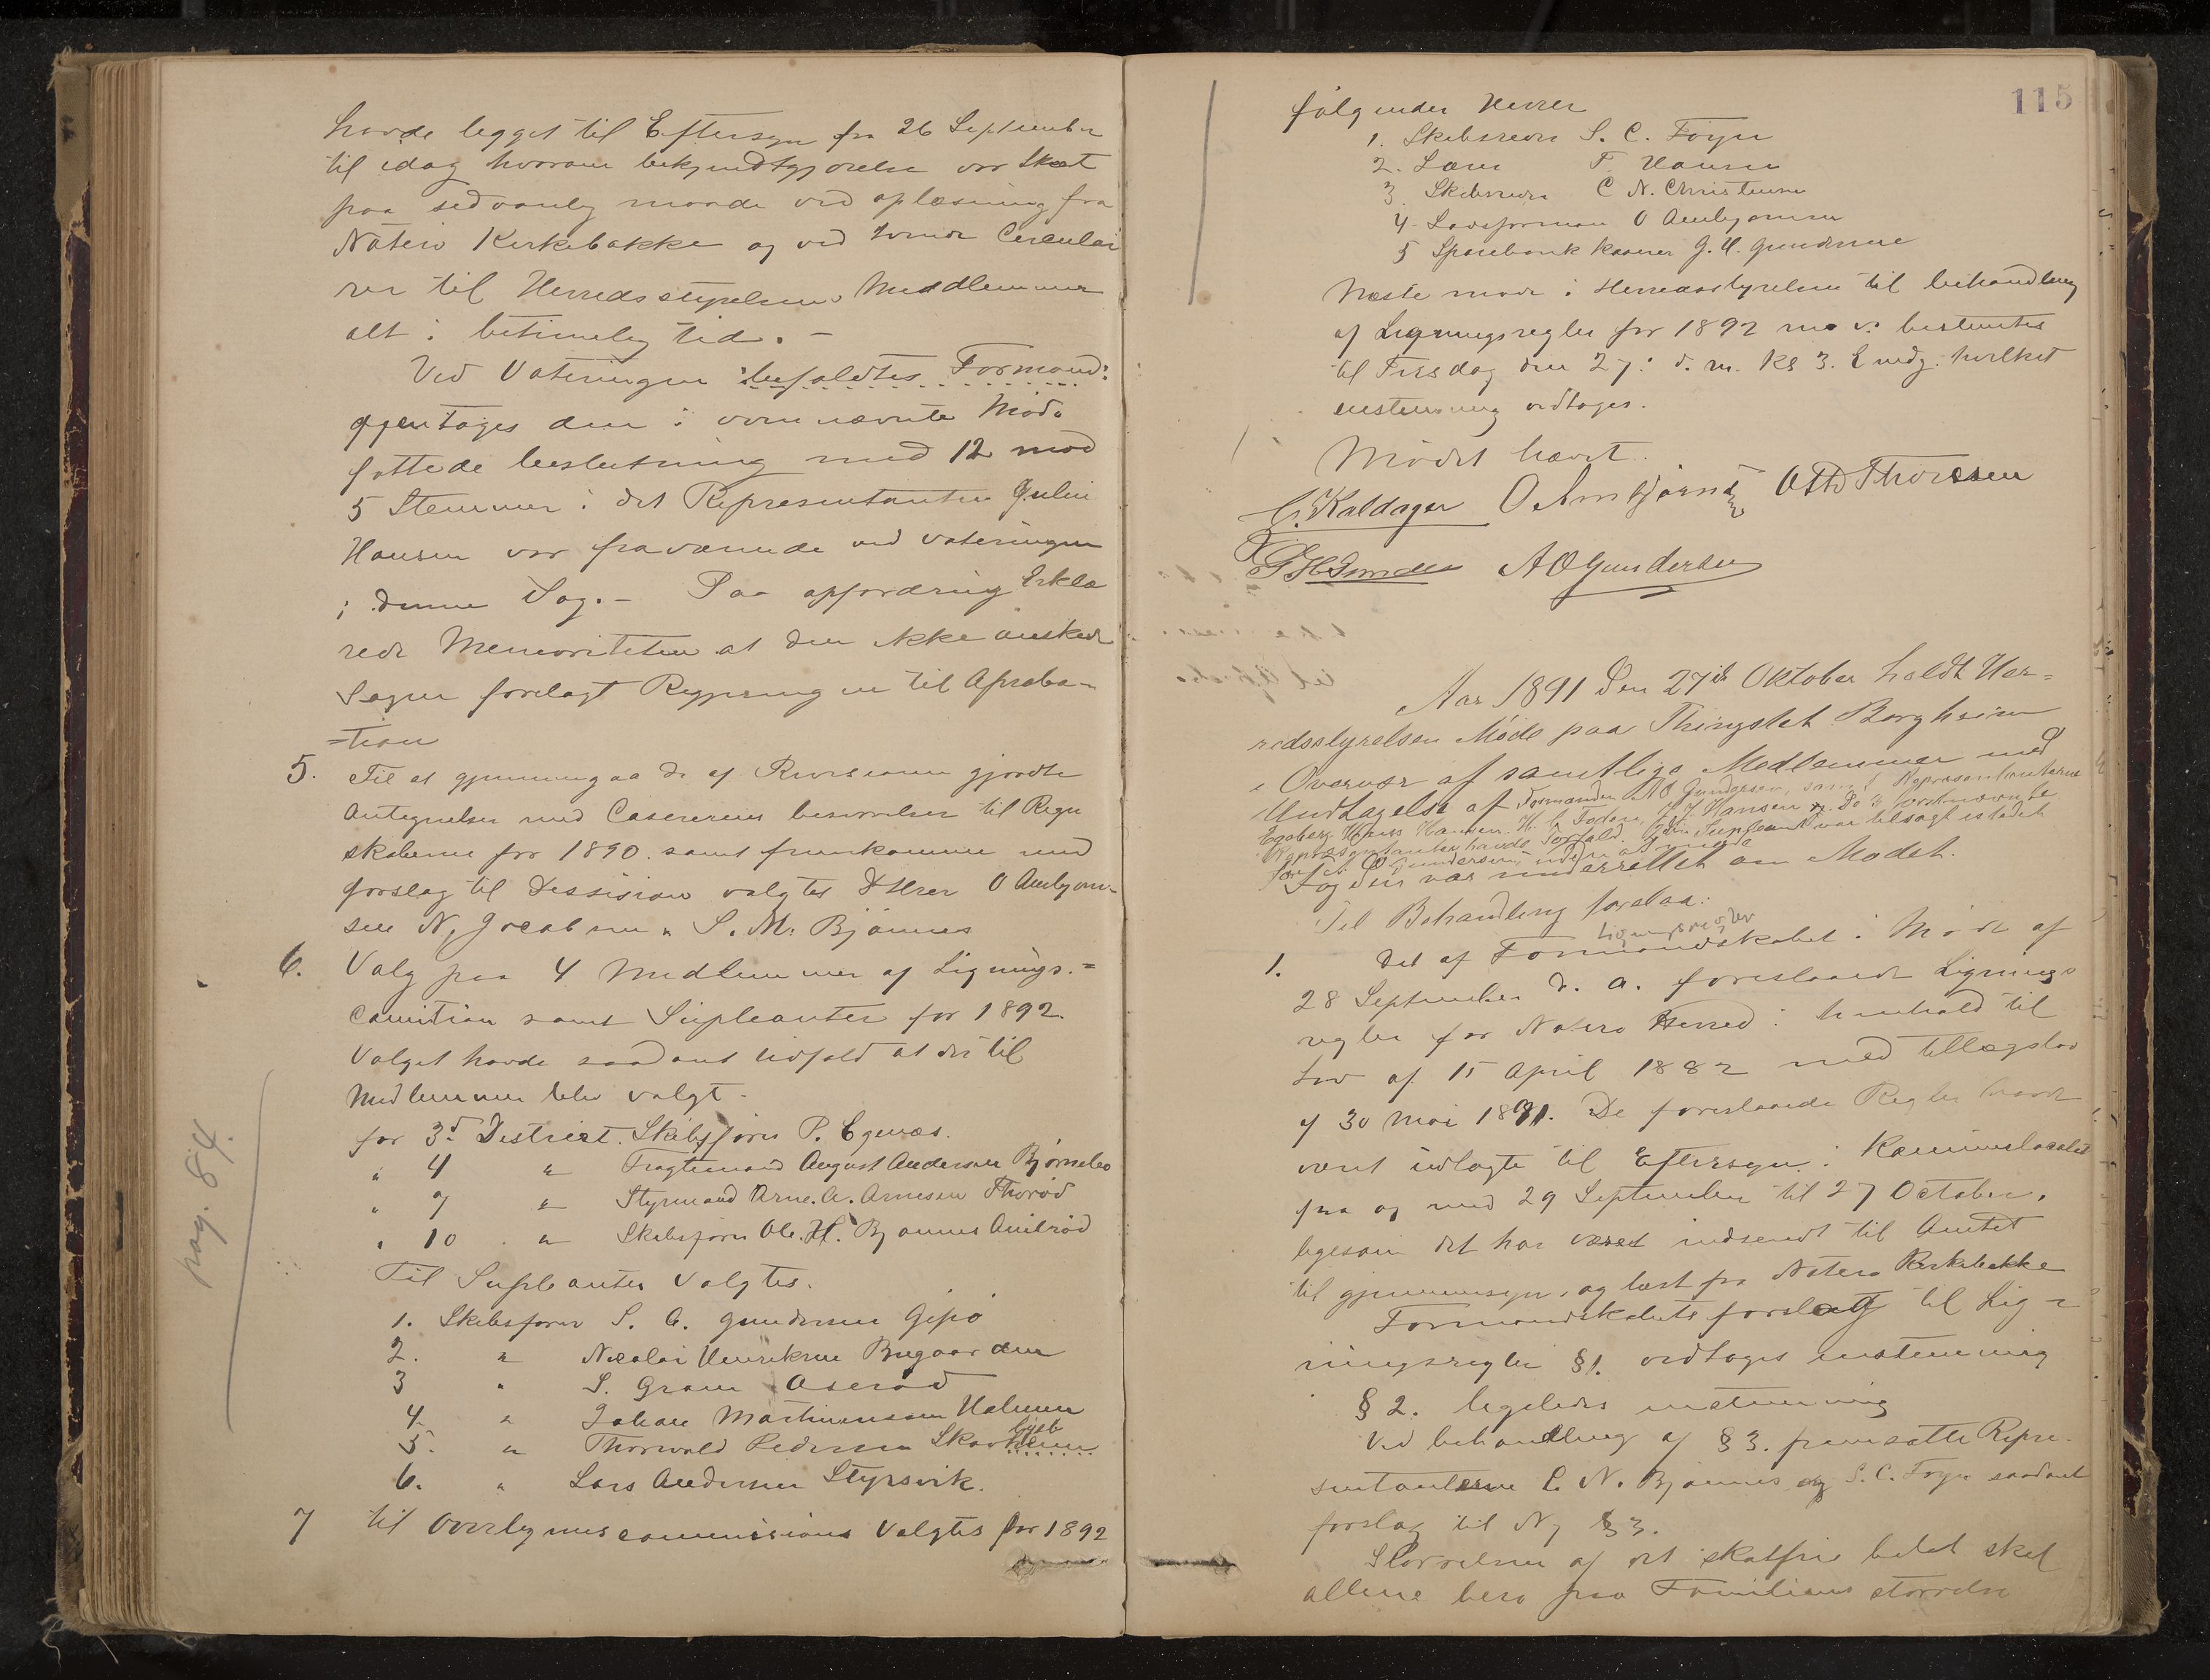 havde ligget til Eftersyn fra 26 September
til idag hvorom bekjendtgjørelse var skeet
paa sedvanlig maade ved oplæsning fra
Nøterø Kirkebakke og ved Circulai
rer til Herredsstyrelsens Medlemmer
alt i betimelig tid. –
Ved Voteringen
gjentoges den i ovennævnte Møde
fattede beslutning med 12 mod
5 Stemmer i det Representanten Julin
Hansen var fraværende ved voteringen
i denne Sag. – Paa opfordring Erklæ
rede Menoriteten at den ikke ønskede
Sagen forelagt Regjeringen til Aproba-
=tion
5. Til at gjennemgaa de af Revisionen gjordte
Antegnelser med Casererens besvarelser til Regn
skaberne for 1890. samt fremkomme med
forslag til Dessision valgtes D'Hrer O Ambjørn-
sen N. Jacobsen S. M. Bjønnes
6. Valg paa 4 Medlemmer af Lignings.=
Comition samt Supleanter for 1892.
Valget havde saadant udfald at der til
Medlemmer blev valgt.
for 3d District. Skibsfører P. Egenæs.
" 4 " Fragtemand August Andersen Bjørnebo
" 7 " Styrmand Arne. A. Arnesen Thorød
" 10 " Skibsfører Ole. H. Bjønnes
Til Supleanter Valgtes.
1. Skibsfører S. C. Gundersen Gipø
2. " Nicolai Henriksen Bugaarden
3 " S. Gram Oserød
4. " Johan Mathiasen
5. " Thorvald Pedersen
6. " Lars Andersen Styrsvik.
7 til Overligningscommission Valgtes for 1892
pag. 84.
115
følgender Herrer
1. Skibsreder S. C. Føyn
2. T. Hansen
3 Skibsreder C N. Christensen
4. Lodsforman O Ambjørnsen
5 Sparebank kaserer G. H. Gundersen
Næste møde i Herredsstyrelsen til behandling
af Ligningsregler for 1892 m. v. bestemtes
til Tirsdag den 27. d. m. Kl 3. Emdg. hvilket
enstemmig vedtoges.
Mødet hævet.
C. Kaldager O Ambjørnsen Otto Thoresen
A O Gundersen
Aar 1891 Den 27de Oktober holdt Her=
redsstyrelsen Møde paa Thingstet Borgheim
i Overvær af samtlige Medlemmer med
Undtagelse af Formanden A O Gundersen, samt Repræsentanterne
Egeberg, Hans Hansen, H. C. Fodsen, J. J. Hansen De 3 forstnævnte
Repræsentanter havde Forfald. Supleant var tilsagt istedet
for A. O. Gundersen, uden at møde
Fogden var underrettet om Mødet.
Til Behandling forelaa:
Ligningsregler
1. Det af Formandskabet i Møde af
28 September d. a. foreslaaede Lignings
regler for Nøterø Herred i henhold til
Lov af 15 April 1882 med tillægslov
af 30 Mai 1891. De foreslaaede Regler havde
været udlagte til Eftersyn i Kommunelocalet
fra og med 29 September til 27 October,
ligesom det har været indsendt til Amtet
til gjennemsyn, og læst fra Nøterø Kirkebakke
Formandskabets forslag til Lig=
ningsregler §1. vedtoges enstemmig
§ 2. ligeledes enstemmig
Ved behandling af § 3. fremsatte Repre-
sentanterne L. N. Bjønnes og S. C. Føyn saadant
forslag til Ny § 3.
Størrelsen af det skatfrie beløb skal
allene bero paa Familiens størrelse